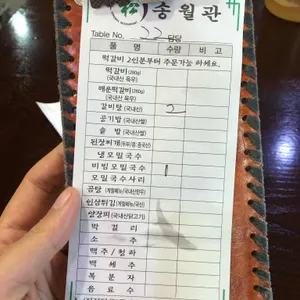 송월관
Table No. 22 담당
품 명 수량 비 고
떡갈비 2인분부터 주문가능 하세요.
떡갈비 (280g)
(국내산 육우)
매운떡갈비 (280g)
(국내산 육우)
갈비탕 (국내산) 2
공기밥 (국내산쌀)
솥 밥 (국내산쌀)
된장찌개
냉모밀국수
비빔모밀국수 1
모밀국수사리
곰탕
인삼튀김
양장피
막 걸 리
소 주
맥주/청하
백 세 주
복 분 자
음 료 수